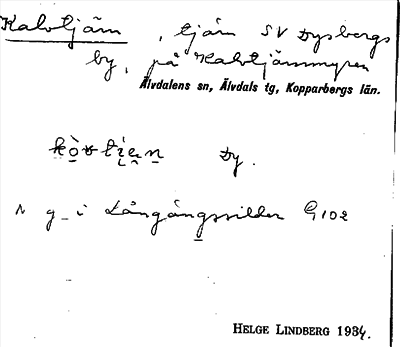 Kalvtjärn, tjärn SV Dysbergs
by, på Kalvtjärnmyren
Älvdalens sn, Älvdals tg, Kopparbergs län.
Dy.
g i Långångssilder G 102
HELGE LINDBERG 1934.